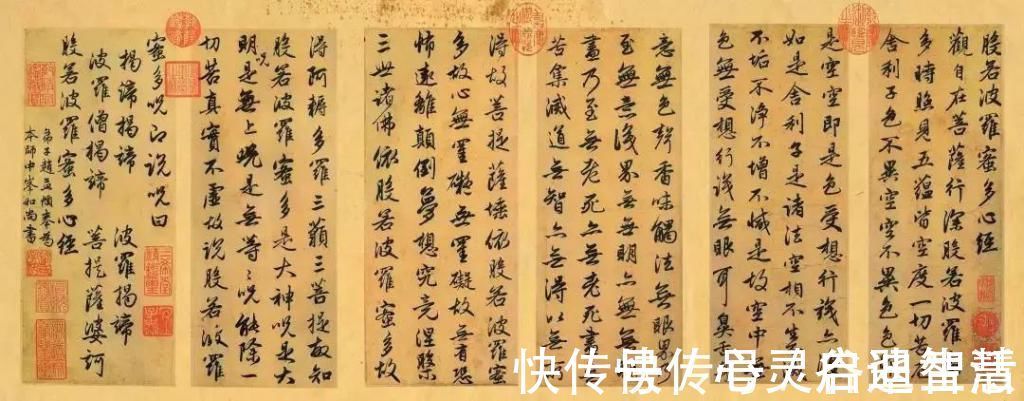 般若波羅蜜多心經
觀自在菩薩行深般若波羅
多時照見五蘊皆空度一切苦
舍利子色不異空空不異色色
是空空即是色受想行識亦
如是舍利子是諸法空相不生
不垢不淨不增不減是故空中
色無受想行識無眼耳鼻舌
意無色聲香味觸法無眼界
至無意識界無無明亦無無
盡乃至無老死亦無老死盡
苦集滅道無智亦無得以無
得故菩提薩埵依般若波羅蜜
多故心無罣礙無罣礙故無有恐
怖遠離顛倒夢想究竟涅槃
三世諸佛依般若波羅蜜多故
得阿耨多羅三藐三菩提故知
般若波羅蜜多是大神呪是大
明呪是無上呪是無等等呪能除一
切苦真實不虛故說般若波羅
蜜多呪即說呪曰
揭諦揭諦 波羅揭諦
波羅僧揭諦 菩提薩婆訶
般若波羅蜜多心經
弟子趙孟頫奉為
本師中峯和尚書
快传 智慧